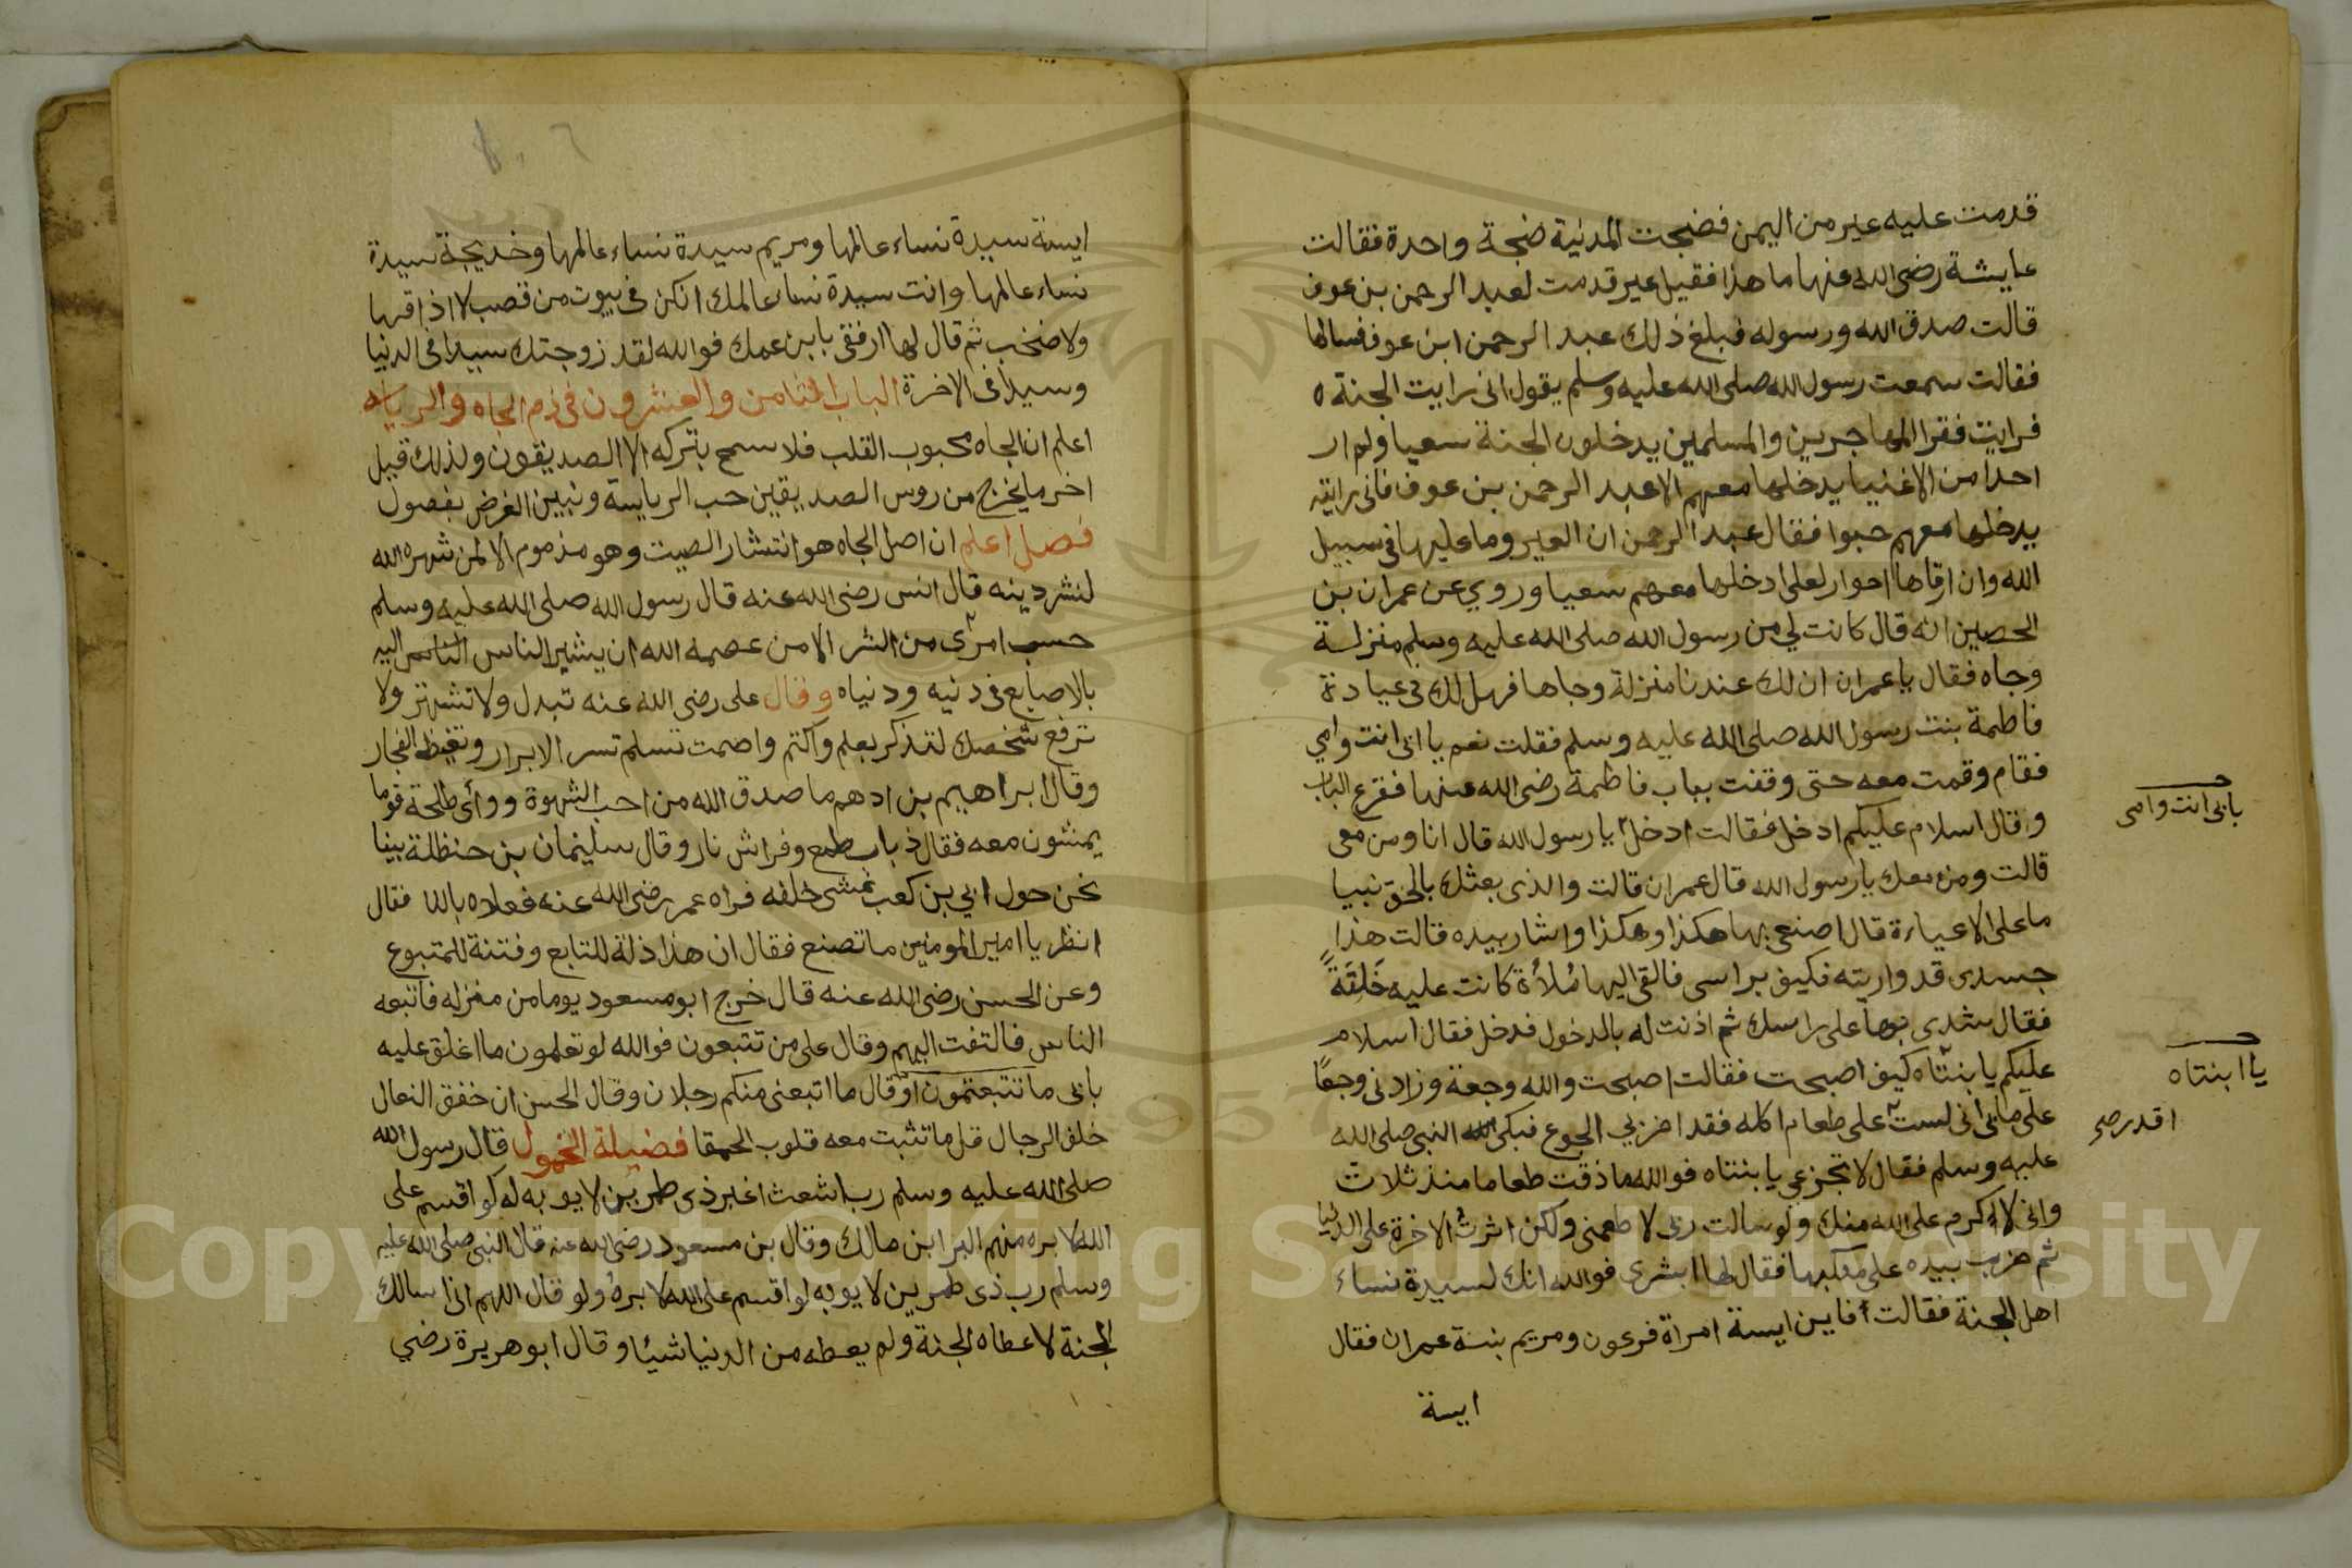 قدمت عليه عير من اليمن فضجت المدنية ضجة واحدة فقالت
عايشة رضى الله عنها ما هذا فقيل عير قدمت لعبد الرحمن بن عوف
قالت صدق الله ورسوله فبلغ ذلك عبد الرحمن ابن عوف فسالها
فقالت سمعت رسول الله صلى الله عليه وسلم يقول انى رايت الجنة ه
فرايت فقرا المهاجرين والمسلمين يدخلون الجنة سعيا ولم ار
احدا من الاغنيا يدخلها معهم الا عبد الرحمن بن عوف فانى رايته
يدخلها معهم حبوا فقال عبد الرحمن ان العير وما عليها فى سبيل
الله وان ارقاها احرار لعلى ادخلها معهم سعيا وروي عن عمران بن
الحصين انه قال كانت لي من رسول الله صلى الله عليه وسلم منزلة
وجاه فقال يا عمران ان لك عندنا منزلة وجاها فهل لك فى عيادة
فاطمة بنت رسول الله صلى الله عليه وسلم فقلت نعم يا ابى انت وامي
فقام وقمت معه حتى وقفت بباب فاطمة رضى الله عنها فقرع الباب
وقال اسلام عليكم ادخل فقالت ادخل يا رسول الله قال انا ومن معى
بابى انت وامى
قالت ومن معك يا رسول الله قال عمران قالت والذى بعثك بالحق نبيا
ما على الا عياءة قال اصنعى بها هكذا وهكذا واشار بيده قالت هذا
جسدى قد واريته فكيف براسى فالقى اليها مُلأة كانت عليه خَلِقَةً
فقال شدى بها على راسك ثم اذنت له بالدخول فدخل فقال اسلام
عليكم يا بنتاه كيف اصبحت فقالت اصبحت والله وجعة وزادنى وجعًا
يا ابنتاه
على مابى انى لست على طعام اكله فقد اضر بي الجوع فبكى النبى صلى الله
اقدر صح
عليه وسلم فقال لا تجزعي يا بنتاه فوالله ما ذقت طعاما منذ ثلاث
وانى لاكرم على الله منك ولو سالت ربى لاطعمنى ولكن اثرت الاخرة على الدنيا
ثم ضرب بيده على منكبها فقال لها ابشرى فوالله انك لسيدة نساء
اهل الجنة فقالت فاين ايسة امراة فرعون ومريم بنت عمران فقال
ايسة
ايسة سيدة نساء عالمها ومريم سيدة نساء عالمها وخديجة سيدة
نساء عالمها وانت سيدة نساء عالمك انكن فى بيوت من قصب لا اذا فيها
ولا ضخب ثم قال لها ارفقى بابن عمك فوالله لقد زوجتك سيدا فى الدنيا
وسيدا فى الاخرة الباب الثامن والعشرون فى ذم الجاه والرياسه
اعلم ان الجاه محبوب القلب فلا سمح بتركه الا الصديقون ولذلك قيل
اخر ما يخرج من روس الصديقين حب الرياسة ونبين الغرض بفصول
فصل اعلم ان اصل الجاه هو انتشار الصيت وهو مذموم الا لمن شهره الله
لنشر دينه قال انس رضى الله عنه قال رسول الله صلى الله عليه وسلم
حسب امرئ من الشر الا من عصمه الله ان يشير الناس اليه
بالاصابع فى دنيه ودنياه وقال على رضى الله عنه تبدل ولا تشتهر ولا
ترفع شخصك لتذكر بعلم واكتم واصمت تسلم تسر الابرار وتغيظ الفجار
وقال ابراهيم بن ادهم ما صدق الله من احب الشهوة وراى طلحة قوما
يمشون معه فقال ذباب طمع وفراش نار وقال سليمان بن حنظلة بينا
نحن حول ابي بن كعب نمشى خلفه فراه عمر رضى الله عنه فعلاه فقال
انظر يا امير المومنين ما تصنع فقال ان هذا ذلة للتابع وفتنة للمتبوع
وعن الحسن رضى الله عنه قال خرج ابو مسعود يوما من منزله فاتبعه
الناس فالتفت اليهم وقال على من تتبعون فوالله لو تعلمون ما اغلق عليه
بابى ما تتبعتمون او قال ما اتبعنى منكم رجلان وقال الحسن ان خفق النعال
خلف الرجال قل ما تثبت معه قلوب الحمقا فضيلة الخمول قال رسول الله
صلى الله عليه وسلم رب اشعث اغبر ذى طمرين لا يوبه له لو اقسم على
الله لابره منهم البرا ابن مالك وقال بن مسعود رضى الله عنه قال النبى صلى الله عليه
وسلم رب ذى طمرين لا يوبه لو اقسم على الله لابره ولو قال اللهم انى اسالك
الجنة لاعطاه الجنة ولم يعطه من الدنيا شيئا وقال ابو هريرة رضي
Copyright © King Saud University
1957